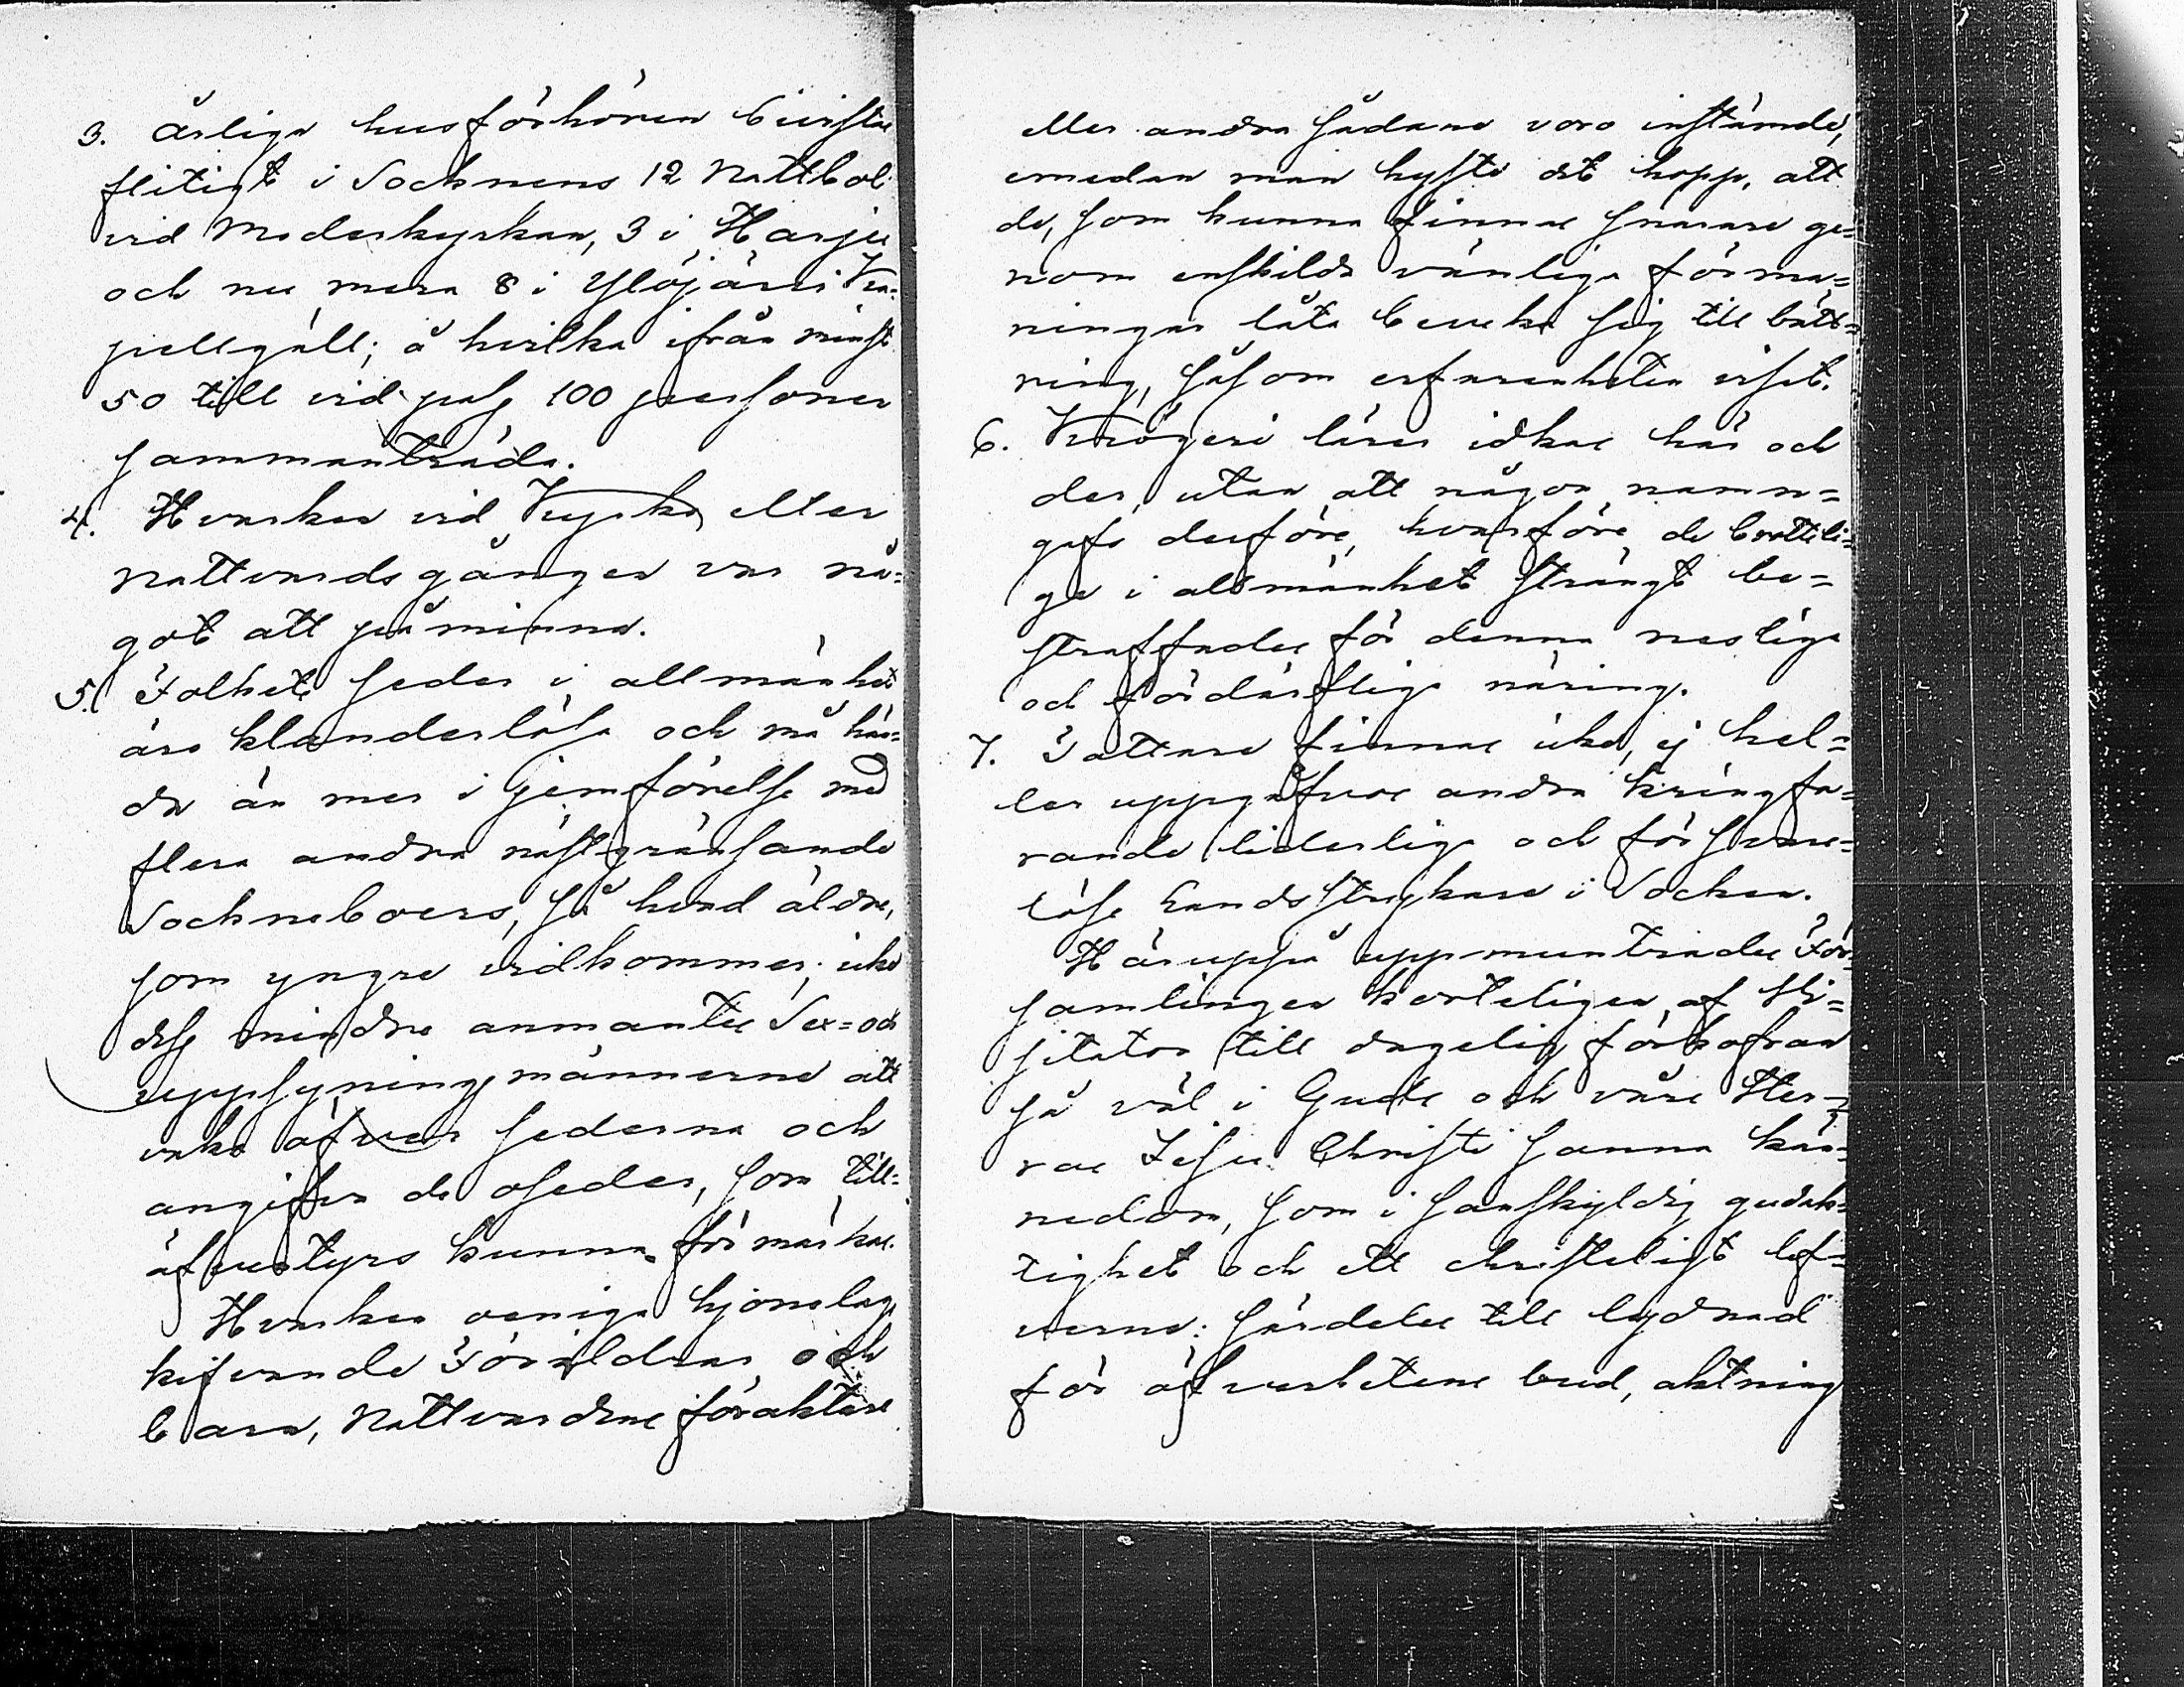 3. Årliga husförhören bivistas
flitigt i Socknens 12 Nattbol
vid Moderkyrkan, 3 i Harju
och nu mera 8 i Ylöjärvi Ka-
pellgäll; å hvilka ifrån minst
50 till vid pass 100 personer
sammanträda.
4. Hvarken vid Kyrko eller
nattvardsgången var nå=
got att påminna.
5. Folkets seder i allmänhet
äro klanderlösa och må hän=
da än mer i jemförelse med
flera andra nästgränsande
Sockneboers, så hvad äldre,
som yngre vidkommer; icke
dess mindre anmantes Sex= och
uppsyningsmännerne att
vaka öfver sederna och
angifva de oseder, som till=
äfventyrs kunna förmärkas.
Hvarken oeniga hjonelag
kifvande Föräldrar och
barn, Nattvardens föraktare
eller andra sådane voro instämde,
emedan man hyste det hopp, att
de, som kunna finnas snarare ge=
nom enskilda vänliga förma=
ningar låta beveka sig till bätt=
ring, såsom erfarenheten visat.
6. Krögeri lärer idkas här och
der, utan att någon namn=
gafs derföre, hvarföre de brottsli=
ge i allmänhet strängt be=
straffades för denna nesliga
och fördärfliga näring.
7. Tattare finnas icke, ej hel=
ler uppgåfvos andra kringfa=
rande liderliga och försvars=
löse Landsstrykare i Socken.
Häruppå uppmuntrades För=
samlingen korteligen af Vi=
sitator till dagelig förkofran
så väl i Guds och våre Her=
ras Jesu Christi sanna kän=
nedom, som i sannskyldig gudak=
tighet och ett christeligt lef=
verne: särdeles till lydnad
för öfverhetens bud, aktning